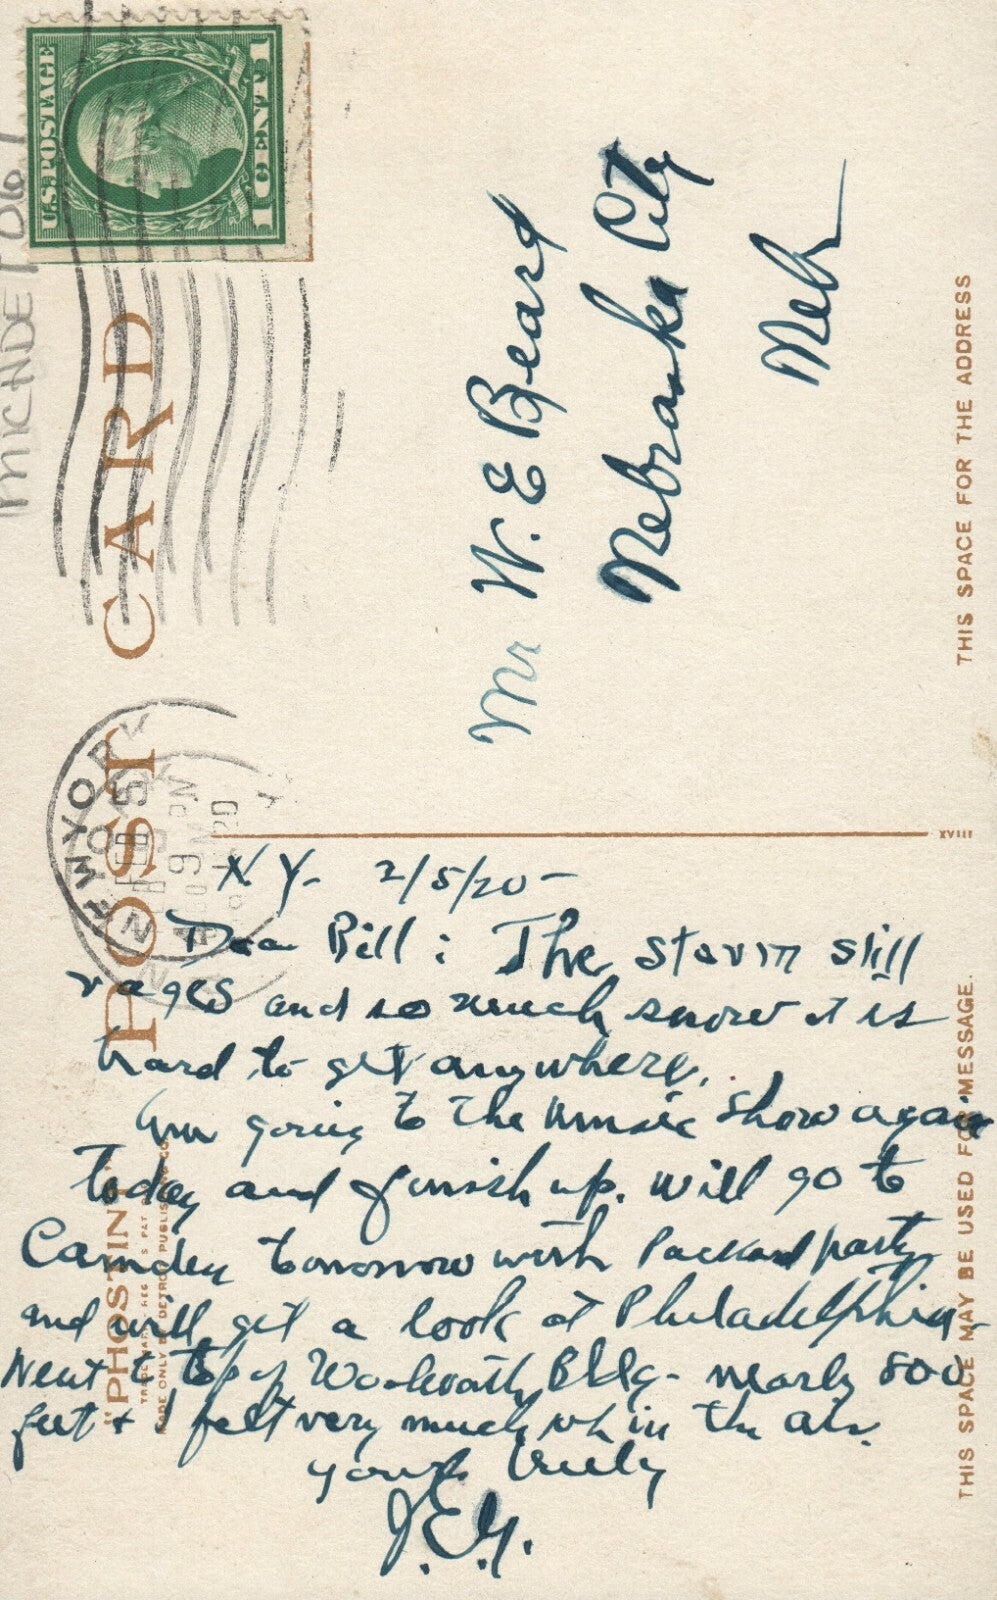 U.S. POSTAGE
1 CENT 1
POST CARD
NEW YORK
FEB 5
9 PM
1920
Mr W. E Beard
Nebraska City
Nebr
THIS SPACE FOR THE ADDRESS
XVIII
N.Y- 2/5/20-
Dear Bill: The storm still
rages and so much snow it is
hard to get anywhere.
Am going to the music show again
today and finish up. Will go to
Camden tomorrow with Packard party
and will get a look at Philadelphia-
Went to top of Woolworth Bldg- nearly 800
feet & I felt very much up in the air.
yours truly
J.E.G.
"PHOSTINT"
THIS SPACE MAY BE USED FOR MESSAGE.